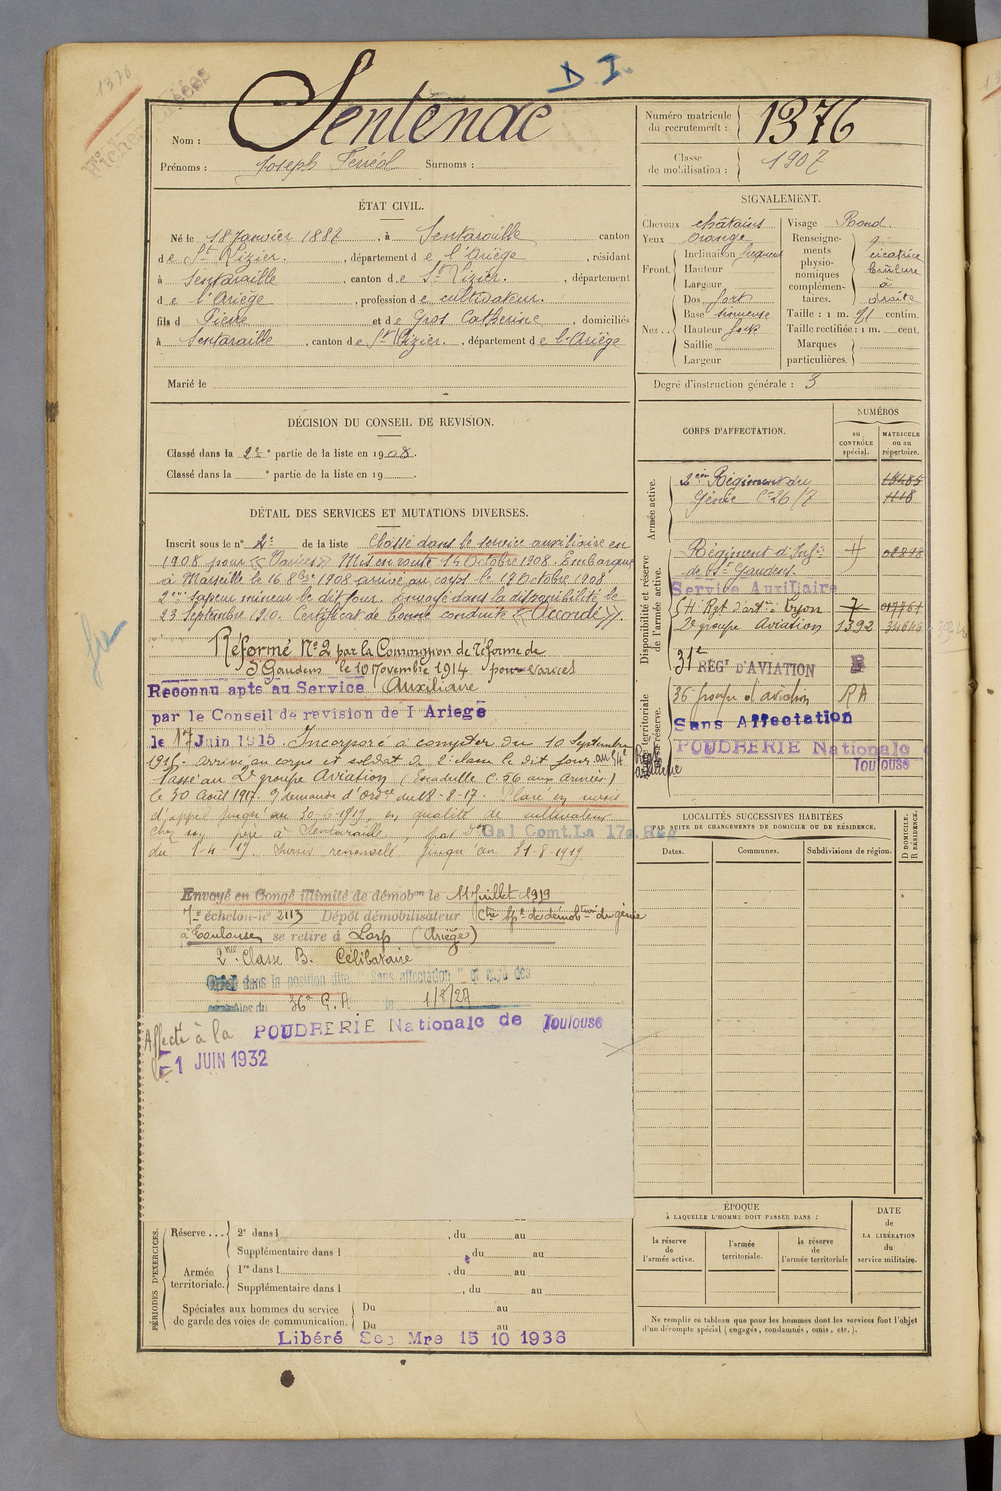 1376
D I.
Nom : Sentenac
Prénoms : Joseph Ferréol Surnoms :
Numéro matricule du recrutement : 1376
Classe de mobilisation : 1907
ÉTAT CIVIL.
Né le 18 Janvier 1887, à Sentaraille canton
de St Lizier., département de l'Ariège, résidant
à Sentaraille, canton de St Lizier., département
de l'Ariège, profession de cultivateur.
fils d Pierre et de Gros Catherine, domiciliés
à Sentaraille, canton de St Lizier., département de l'Ariège
Marié le
SIGNALEMENT.
Cheveux châtains
Yeux orange
Front. Inclinaison
Hauteur
Largeur
Nez.. Dos fort
Base sinueuse
Hauteur fort
Saillie
Largeur
Visage Rond
Renseignements physionomiques complémentaires. cicatrice à droite
Taille : 1 m. 71 centim.
Taille rectifiée : 1 m. cent.
Marques particulières.
Degré d'instruction générale : 3
DÉCISION DU CONSEIL DE REVISION.
Classé dans la 2e partie de la liste en 1908.
Classé dans la e partie de la liste en 19 .
DÉTAIL DES SERVICES ET MUTATIONS DIVERSES.
Inscrit sous le n° 2: de la liste Classé dans le service auxiliaire en
1908 pour « Varices » Mis en route 15 Octobre 1908. Embarqué
à Marseille le 16 8bre 1908 arrivé au corps le 18 Octobre 1908
2me sapeur mineur le dit jour. Envoyé dans la disponibilité le
23 Septembre 1910. Certificat de bonne conduite « Accordé ».
Réformé N°2 par la Commission de réforme de
St Gaudens le 10 Novembre 1914 pour varices
Reconnu apte au Service Auxiliaire
par le Conseil de revision de l'Ariege
le 17 Juin 1915. Incorporé à compter du 10 Septembre
1915. Arrivé au corps et soldat de 2e classe le dit jour au 54e
Passé au 2e groupe Aviation (Escadrille C. 56 aux Armées)
le 30 Août 1917. demande d'Ordre du 18-8-17. Placé en sursis
d'appel jusqu'au 30-6-1919, en qualité de cultivateur
chez son père à Sentaraille par Gal Comt. La 17e Reg
du 1-4-19. Sursis renouvelé jusqu'au 31-8-1919.
Envoyé en Congé illimité de démobon le 11 Juillet 1919
7e échelon-n° 2113 Dépôt démobilisateur Ctre Spl de démobtion du génie
à Toulouse se retire à Lorp (Ariège)
2me Classe B. Célibataire
dans la position dite "sans affectation" et rayé des
contrôles du 36e G. A le 1/8/27
Affecté à la POUDRERIE Nationale de Toulouse
le 1 JUIN 1932
CORPS D'AFFECTATION.
NUMÉROS
au CONTRÔLE spécial.
MATRICULE ou au répertoire.
Armée active.
2ème Régiment du 15485
Génie Cie 26/7 1118
Disponibilité et réserve de l'armée active.
Régiment d'Infie 4
de St Gaudens.
Service Auxiliaire
54e Rgt d'artie à Lyon 7
2e groupe Aviation 1392 34646
31e REGt D'AVIATION
36 groupe d'aviation RA
Sans Affectation
POUDRERIE Nationale
Toulouse
LOCALITÉS SUCCESSIVES HABITÉES
PAR SUITE DE CHANGEMENTS DE DOMICILE OU DE RÉSIDENCE.
Dates. Communes. Subdivisions de région.
D DOMICILE. R RÉSIDENCE.
ÉPOQUE
À LAQUELLE L'HOMME DOIT PASSER DANS :
la réserve de l'armée active.
l'armée territoriale.
la réserve de l'armée territoriale
DATE
de
LA LIBÉRATION
du
service militaire.
Ne remplir ce tableau que pour les hommes dont les services font l'objet
d'un décompte spécial (engagés, condamnés, omis, etc.).
PÉRIODES D'EXERCICES.
Réserve ... 2e dans l , du au
Supplémentaire dans l , du au
Armée territoriale. 1re dans l , du au
Supplémentaire dans l , du au
Spéciales aux hommes du service de garde des voies de communication. Du au
Du au
Libéré Sce Mre 15 10 1936